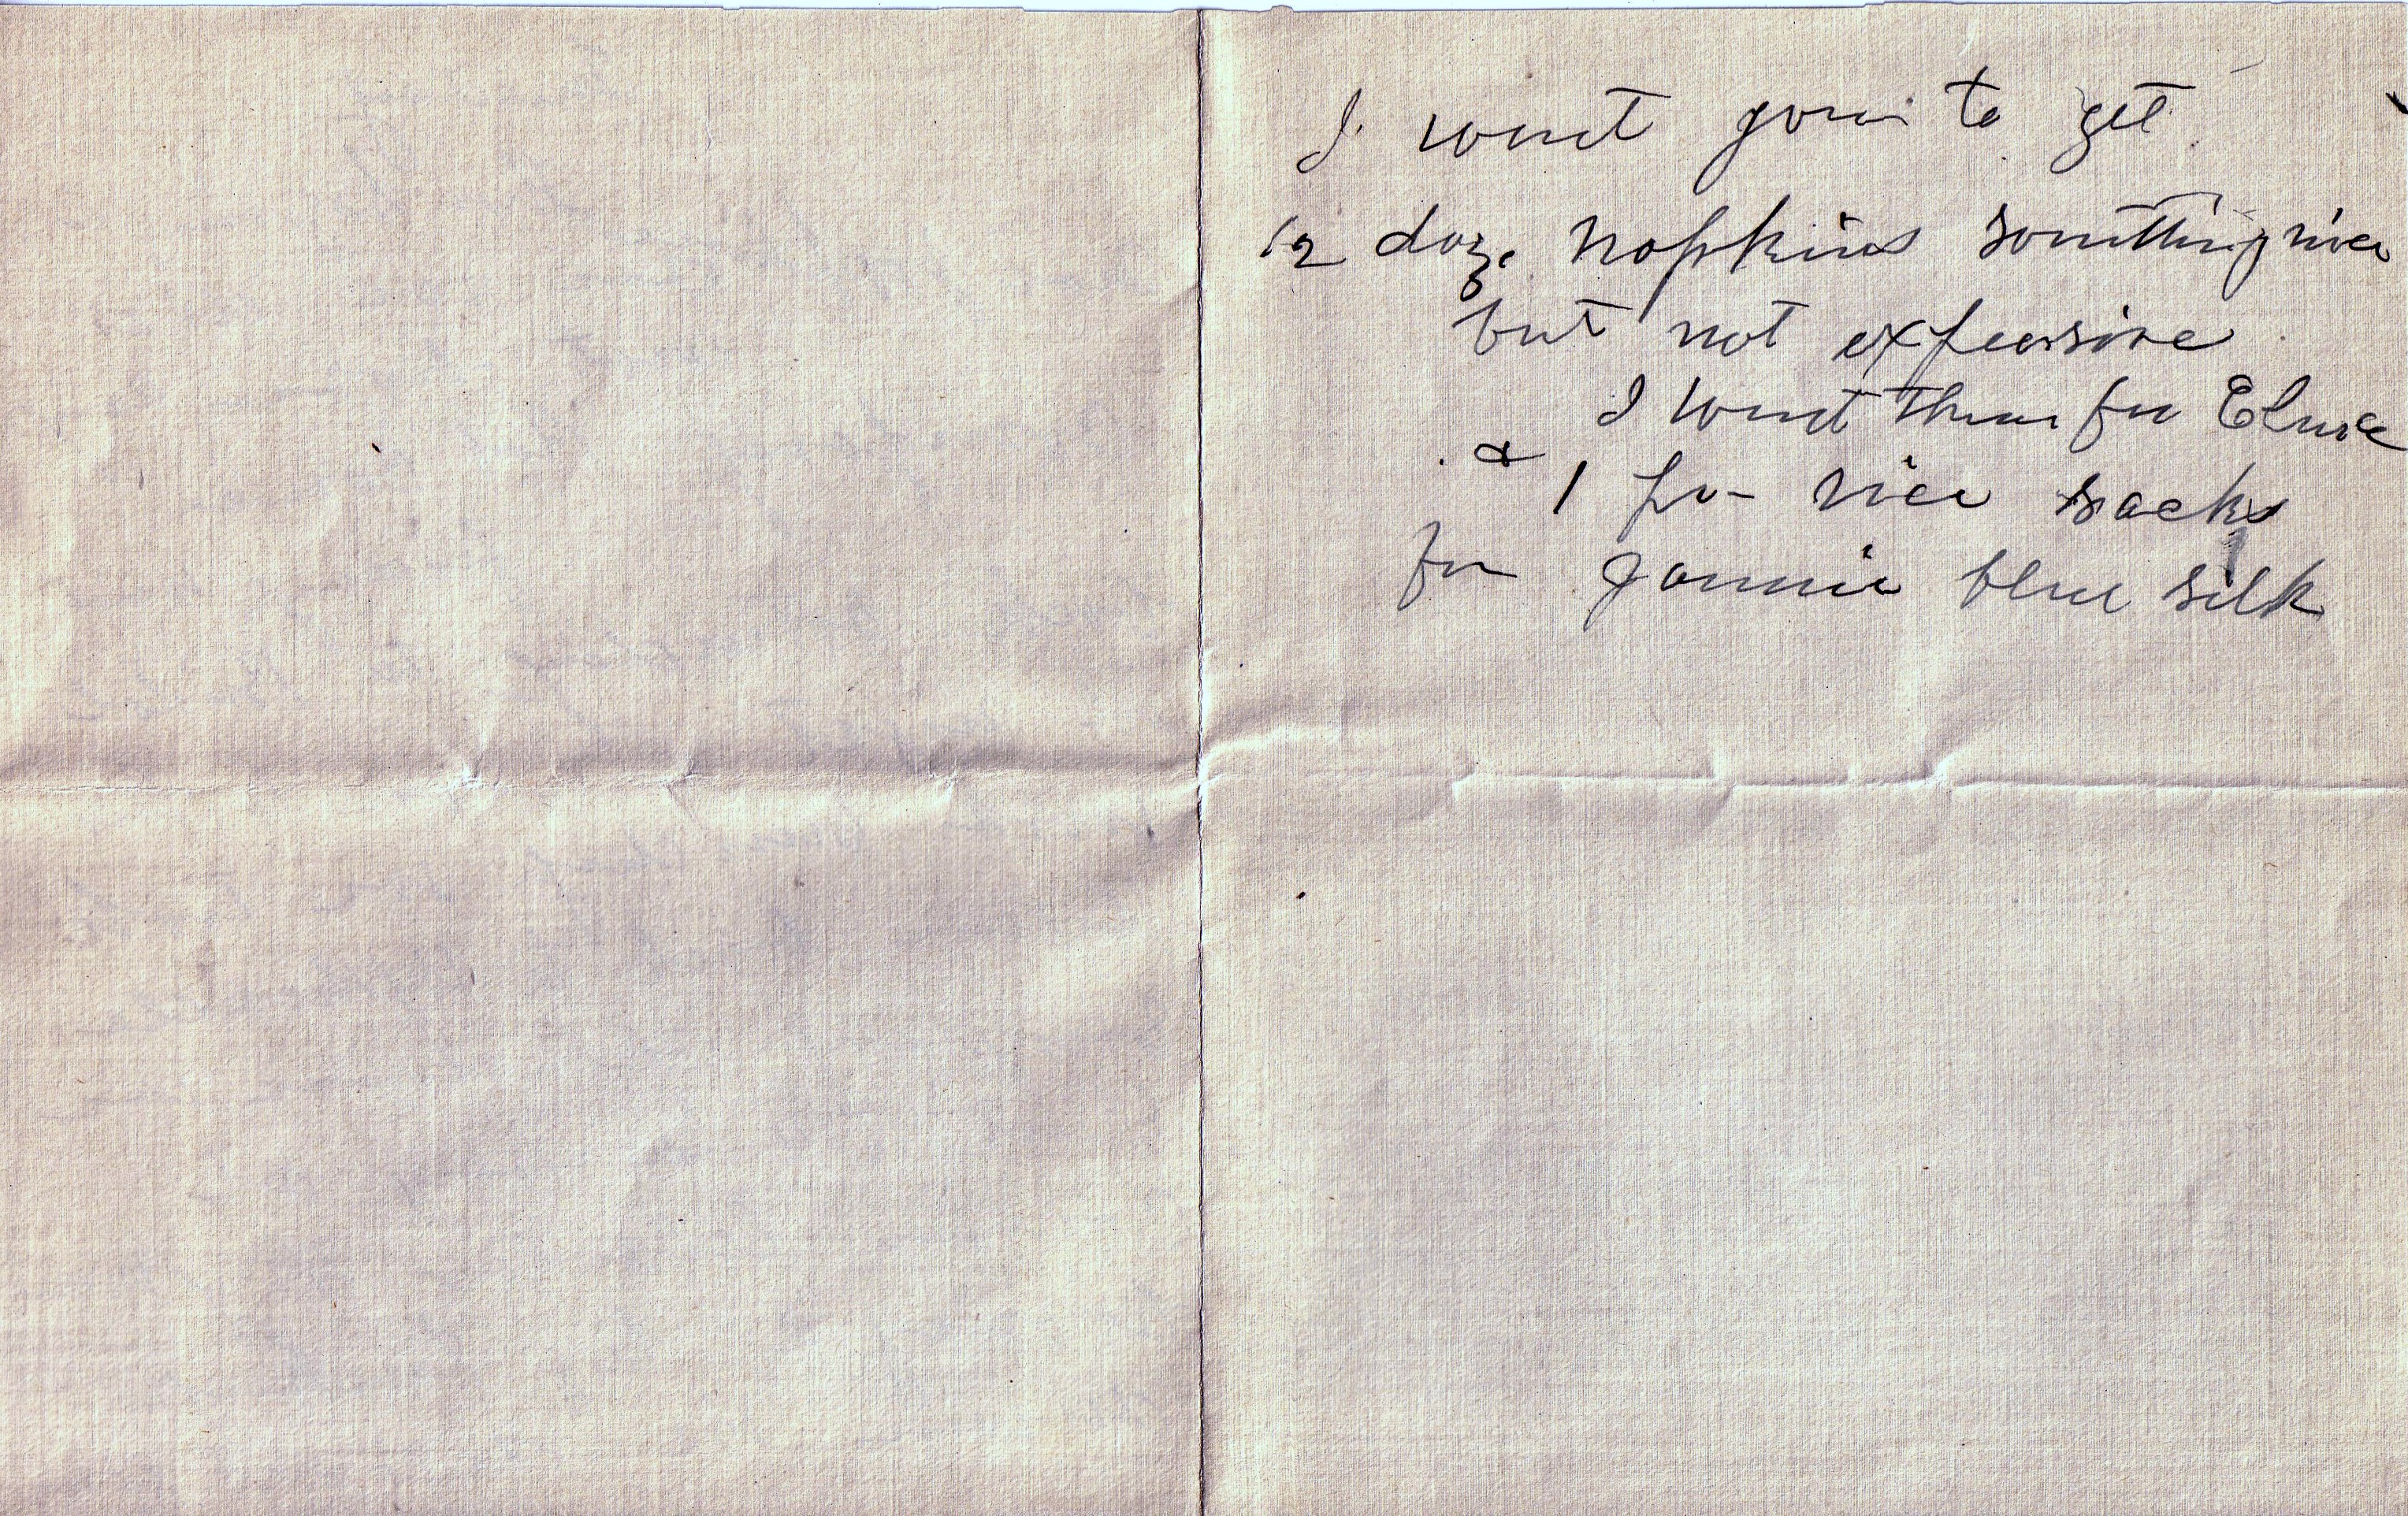 I want you to get
1/2 doz. napkins something nice
but not expensive
I want them for
& 1 pr nice sacks
for Jannie blue silk